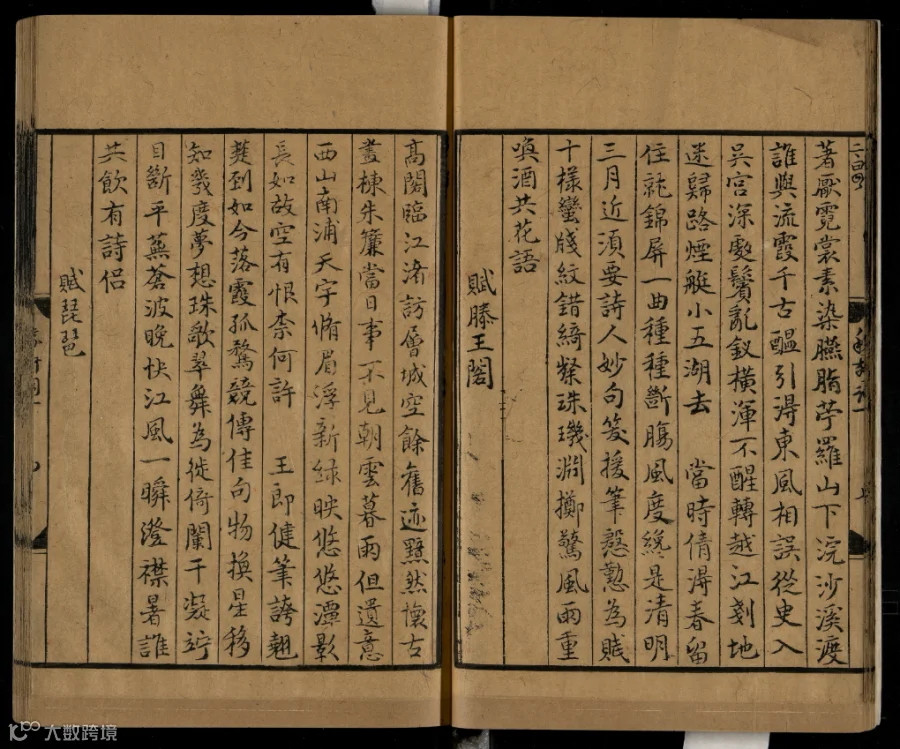 著厭霓裳素染臙脂苧羅山下浣沙溪渡
誰與流霞千古醞引得東風相誤從臾入
吳宮深處鬢亂釵橫渾不醒轉越江剗地
迷歸路煙艇小五湖去　當時倩得春留
住就錦屏一曲種種斷膓風度纔是清明
三月近須要詩人妙句笑援筆慇懃為賦
十樣蠻牋紋錯綺粲珠璣淵擲驚風雨重
喚酒共花語
賦滕王閣
高閣臨江渚訪層城空餘舊迹黯然懷古
畫棟朱簾當日事不見朝雲暮雨但遺意
西山南浦天宇脩眉浮新綠映悠悠潭影
長如故空有恨柰何許　王郎健筆誇翹
楚到如今落霞孤鶩競傳佳句物換星移
知幾度夢想珠歌翠舞為徙倚闌干凝竚
目斷平蕪蒼波晚快江風一瞬澄襟暑誰
共飲有詩侶
賦琵琶
大数跨境